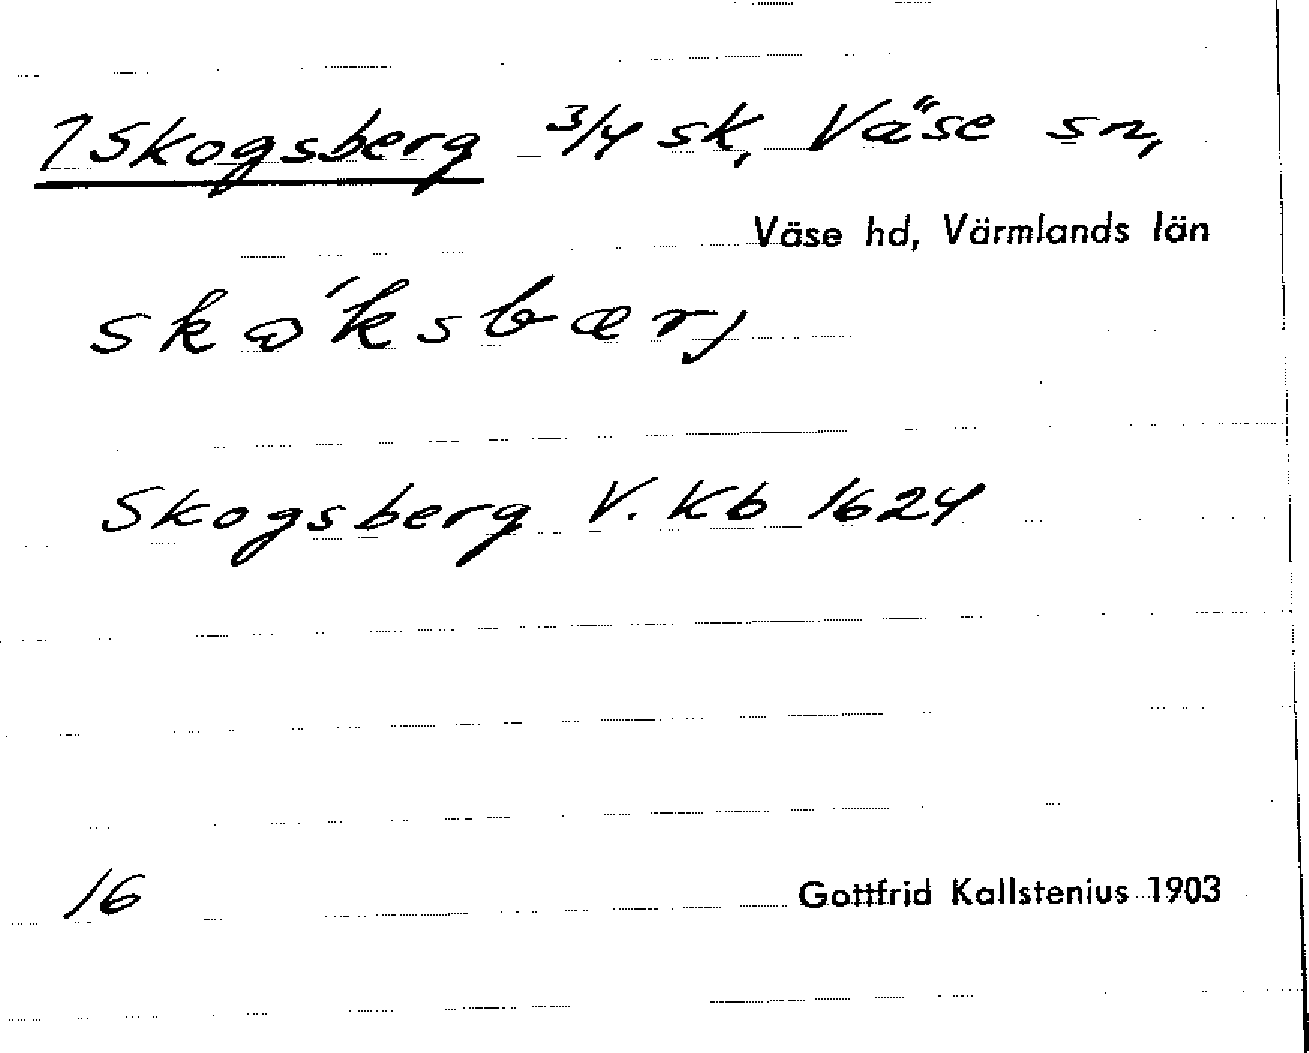 1 Skogsberg 3/4 sk, Väse sn,
Väse hd, Värmlands län
skω´ksbærj
Skogsberg V. Kb 1624
16
Gottfrid Kallstenius 1903